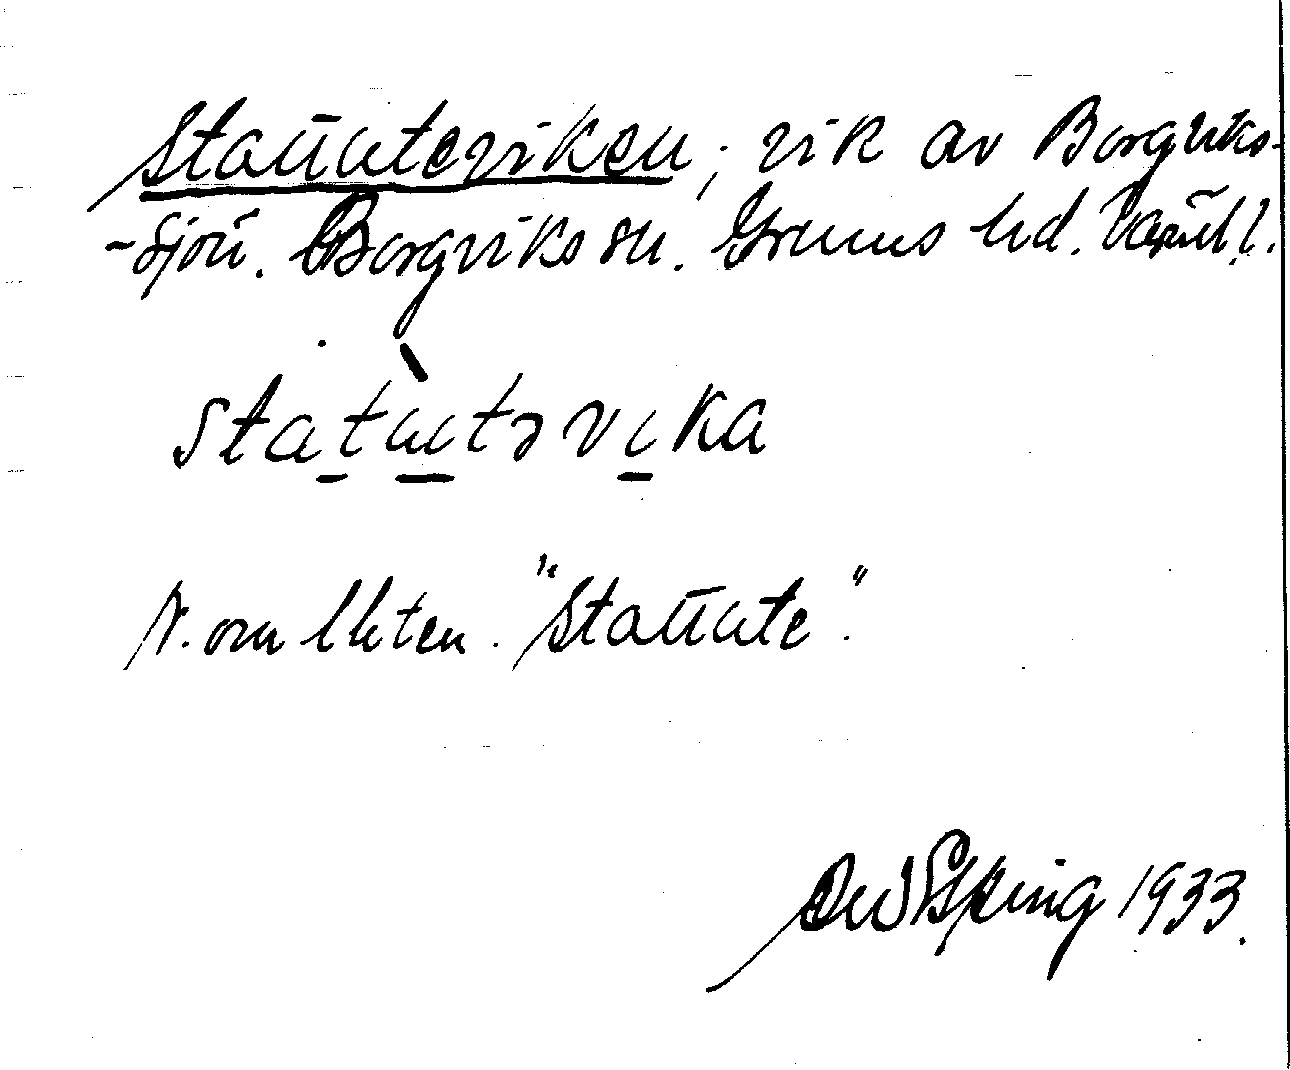 Statuteviken, vik av Borgviks-
-sjön. Borgviks sn. Grums hd. Värml l.
statutə vika
N. om lhten. "Statute".
1933.